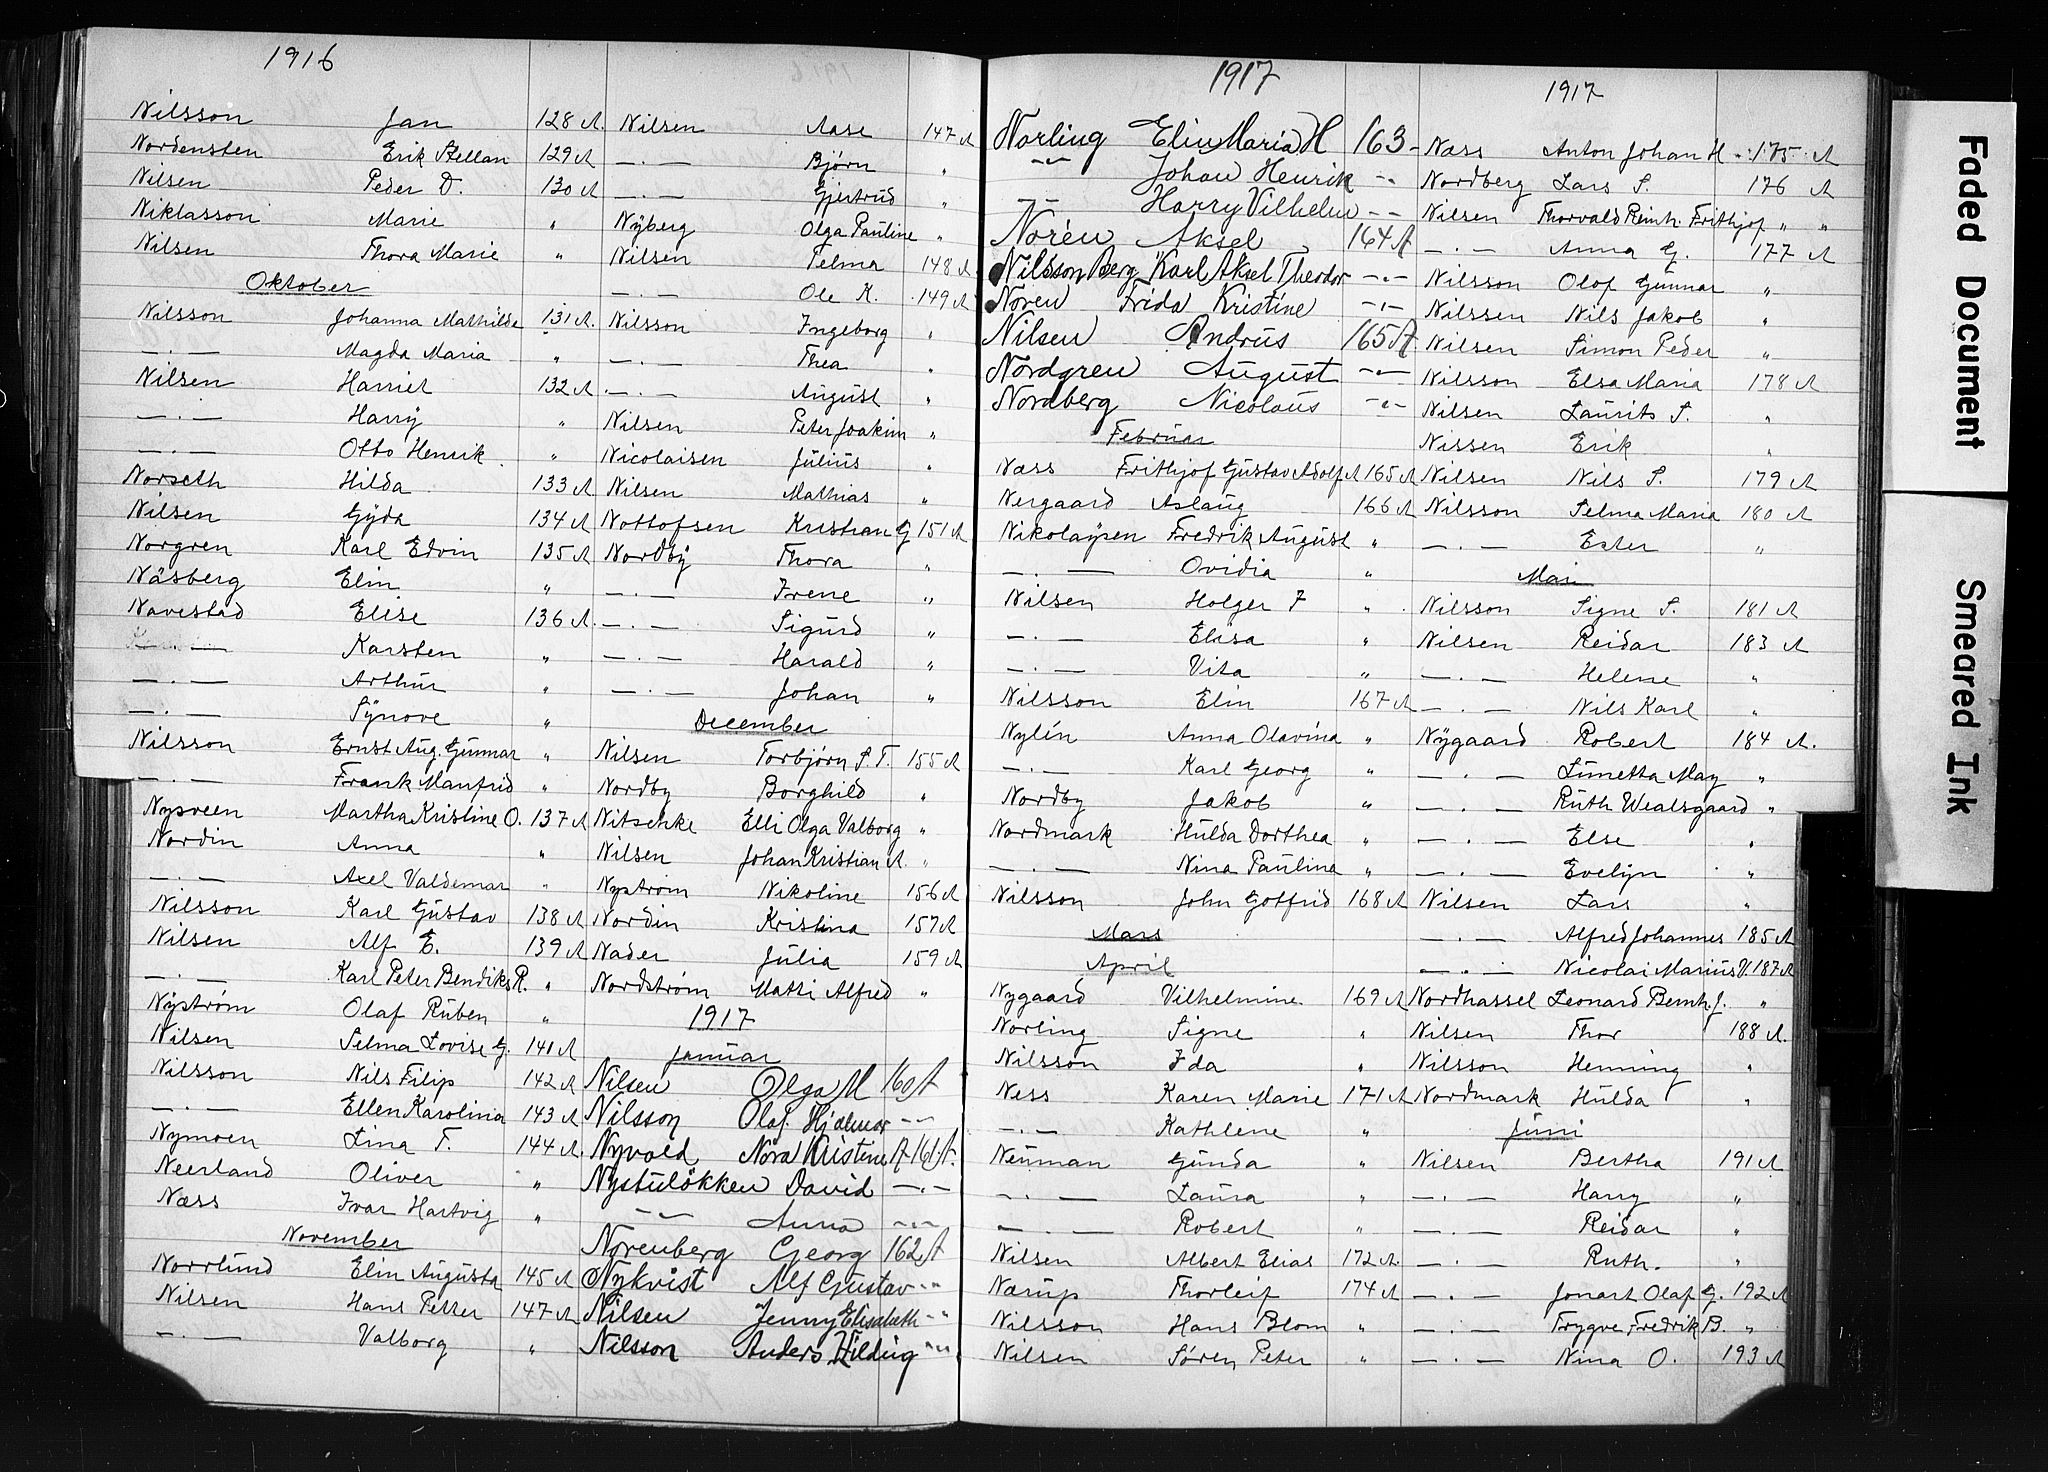 1916
Nilsson Jan 128 A.
Nordensten Erik Stellan 129 A
Nilsen Peder D. 130 A
Niklasson Marie "
Nilsen Thora Marie "
Oktober
Nilsson Johanna Mathilde 131 A.
—.— Magda Maria "
Nilsen Harriet 132 A
—.— Harry "
—.— Otto Henrik "
Norseth Hilda 133 A
Nilsen Gyda 134 A
Norgren Karl Edvin 135 A
Näsberg Elin "
Navestad Elise 136 A.
—.— Karsten "
—.— Arthur "
—.— Synove "
Nilsson Ernst Aug. Gunnar "
—.— Frank Manfrid "
Nysveen Martha Kristine O. 137 A
Nordin Anna "
—.— Axel Valdemar "
Nilsson Karl Gustav 138 A
Nilsen Alf E. 139 A
—.— Karl Peter Bendiks R. "
Nyström Olaf Ruben "
Nilsen Selma Lovise G. 140 A
Nilsson Nils Filip 142 A
—.— Ellen Karolina 143 A
Nymoen Lina T. 144 A.
Neerland Oliver "
Næss Ivar Hartvig "
November
Norrlund Elin Augusta 145 A
Nilsen Hans Petter 147 A
—.— Valborg "
Nilsen Aase 147 A
—.— Bjørn "
—.— Gjertrud "
Nyberg Olga Pauline "
Nilsen Selma 148 A.
—.— Ole K. 149 A
Nilsson Ingeborg "
—.— Thea "
—.— August "
Nilsen Peter Joakim "
Nicolaisen Julius "
Nilsen Mathias "
Nottofsen Kristian G 151 A
Nordby Thora "
—.— Irene "
—.— Sigurd "
—.— Harald "
—.— Johan "
December
Nilsen Torbjørn S. T. 155 A
Nordby Borghild "
Nitschke Elli Olga Valborg "
Nilsen Johan Kristian A. "
Nystrøm Nikoline 156 A
Nordin Kristina 157 A
Nader Julia 159 A
Nordstrøm Matti Alfred "
1917
Januar
Nilsen Olga M 160 A
Nilsson Olof Hjalmar —"—
Nyvold Nora Kristine A 161 A.
Nystuløkken David —.—
—"— Anna —"—
Norenberg Georg 162 A
Nykvist Alf Gustav —"—
Nilsen Jenny Elisabeth —"
Nilsson Anders Hilding —"—
1917
Norling Elin Maria H 163 —
—"— Johan Henrik —"
—"— Harry Vilhelm —"—
Norén Aksel 164 A
Nilsson Berg Karl Aksel Theodor —"—
Noren Frida Kristine —"—
Nilsen Andrus 165 A
Nordgren August —"—
Nordberg Nicolaus —"—
Februar
Næss Frithjof Gustav Adolf A 165 A
Nergaard Aslaug 166 A
Nikolaysen Fredrik August "
—.— Ovidia "
Nilsen Holger F "
—.— Elisa "
—.— Vita "
Nilsson Elin 167 A
Nylén Anna Olavina "
—.— Karl Georg "
Nordby Jakob "
Nordmark Hulda Dorthea "
—.— Nina Paulina "
Nilsson John Gotfrid 168 A
Mars
April
Nygaard Vilhelmine 169 A
Norling Signe "
Nilsson Ida "
Ness Karen Marie 171 A
—.— Kathlene "
Neuman Gunda "
—.— Laura "
—.— Robert "
Nilsen Albert Elias 172 A.
Nærup Thorleif 174 A
Nilsson Hans Blom "
Nilsen Søren Peter "
1917
Næss Anton Johan H. 175 A
Nordberg Lars S. 176 A
Nilsen Thorvald Reinh. Frithjof " "
—.— Anna G. 177 A
Nilsson Olof Gunnar "
Nilssen Nils Jakob "
Nilsen Simon Peder "
Nilsson Elsa Maria 178 A
Nilsen Laurits S. "
Nissen Erik "
Nilsen Nils S. 179 A
Nilsson Selma Maria 180 A
—.— Ester "
Mai
Nilsson Signe S. 181 A
Nilsen Reidar 183 A
—.— Helene "
—.— Nils Karl "
Nygaard Robert 184 A.
—.— Linetta May "
—.— Ruth Wealsgaard "
—.— Else "
—.— Evelyn "
Nilsen Lars "
—.— Alfred Johannes 185 A
—.— Nicolai Marius V. 187 A
Nordhassel Leonard Bernh. J. "
Nilsen Thor 188 A.
Nilsson Henning "
Nordmark Hulda "
Juni
Nilsen Bertha 191 A
—.— Harry "
—.— Reidar "
—.— Ruth. "
—.— Jonart Olaf G. 192 A
—.— Trygve Fredrik B. "
—.— Nina O. 193 A
Faded Document
Smeared Ink